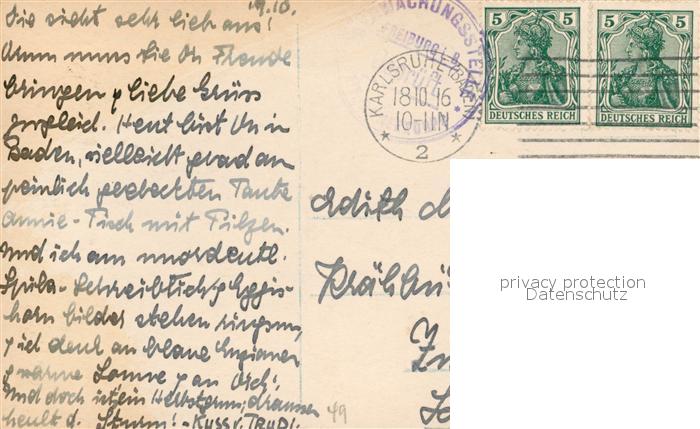 18.10.
Sie sieht sehr lieb aus!
Drum muss sie Dir Freude
bringen & liebe Grüsse
zugleich. Heut bist Du in
Baden, vielleicht grad am
peinlich gedeckten Tante
Annie-Tisch mit Pilzen.
Und ich am unordentl.
Schreibtisch & Eggis-
hornbilder stehen ringsum,
& ich denk an blaue Enziane
& warme Sonne & an Dich!
Und doch ist ein Herbststurm; draussen
heult d. Sturm! - Kuss v. Trudi.
49
ÜBERWACHUNGSSTELLE
FREIBURG i. B.
KARLSRUHE (BADEN)
18.10.16
10-11N
* 2 *
5 5
DEUTSCHES REICH
5 5
DEUTSCHES REICH
Edith
Krähbü
Zü
privacy protection
Datenschutz